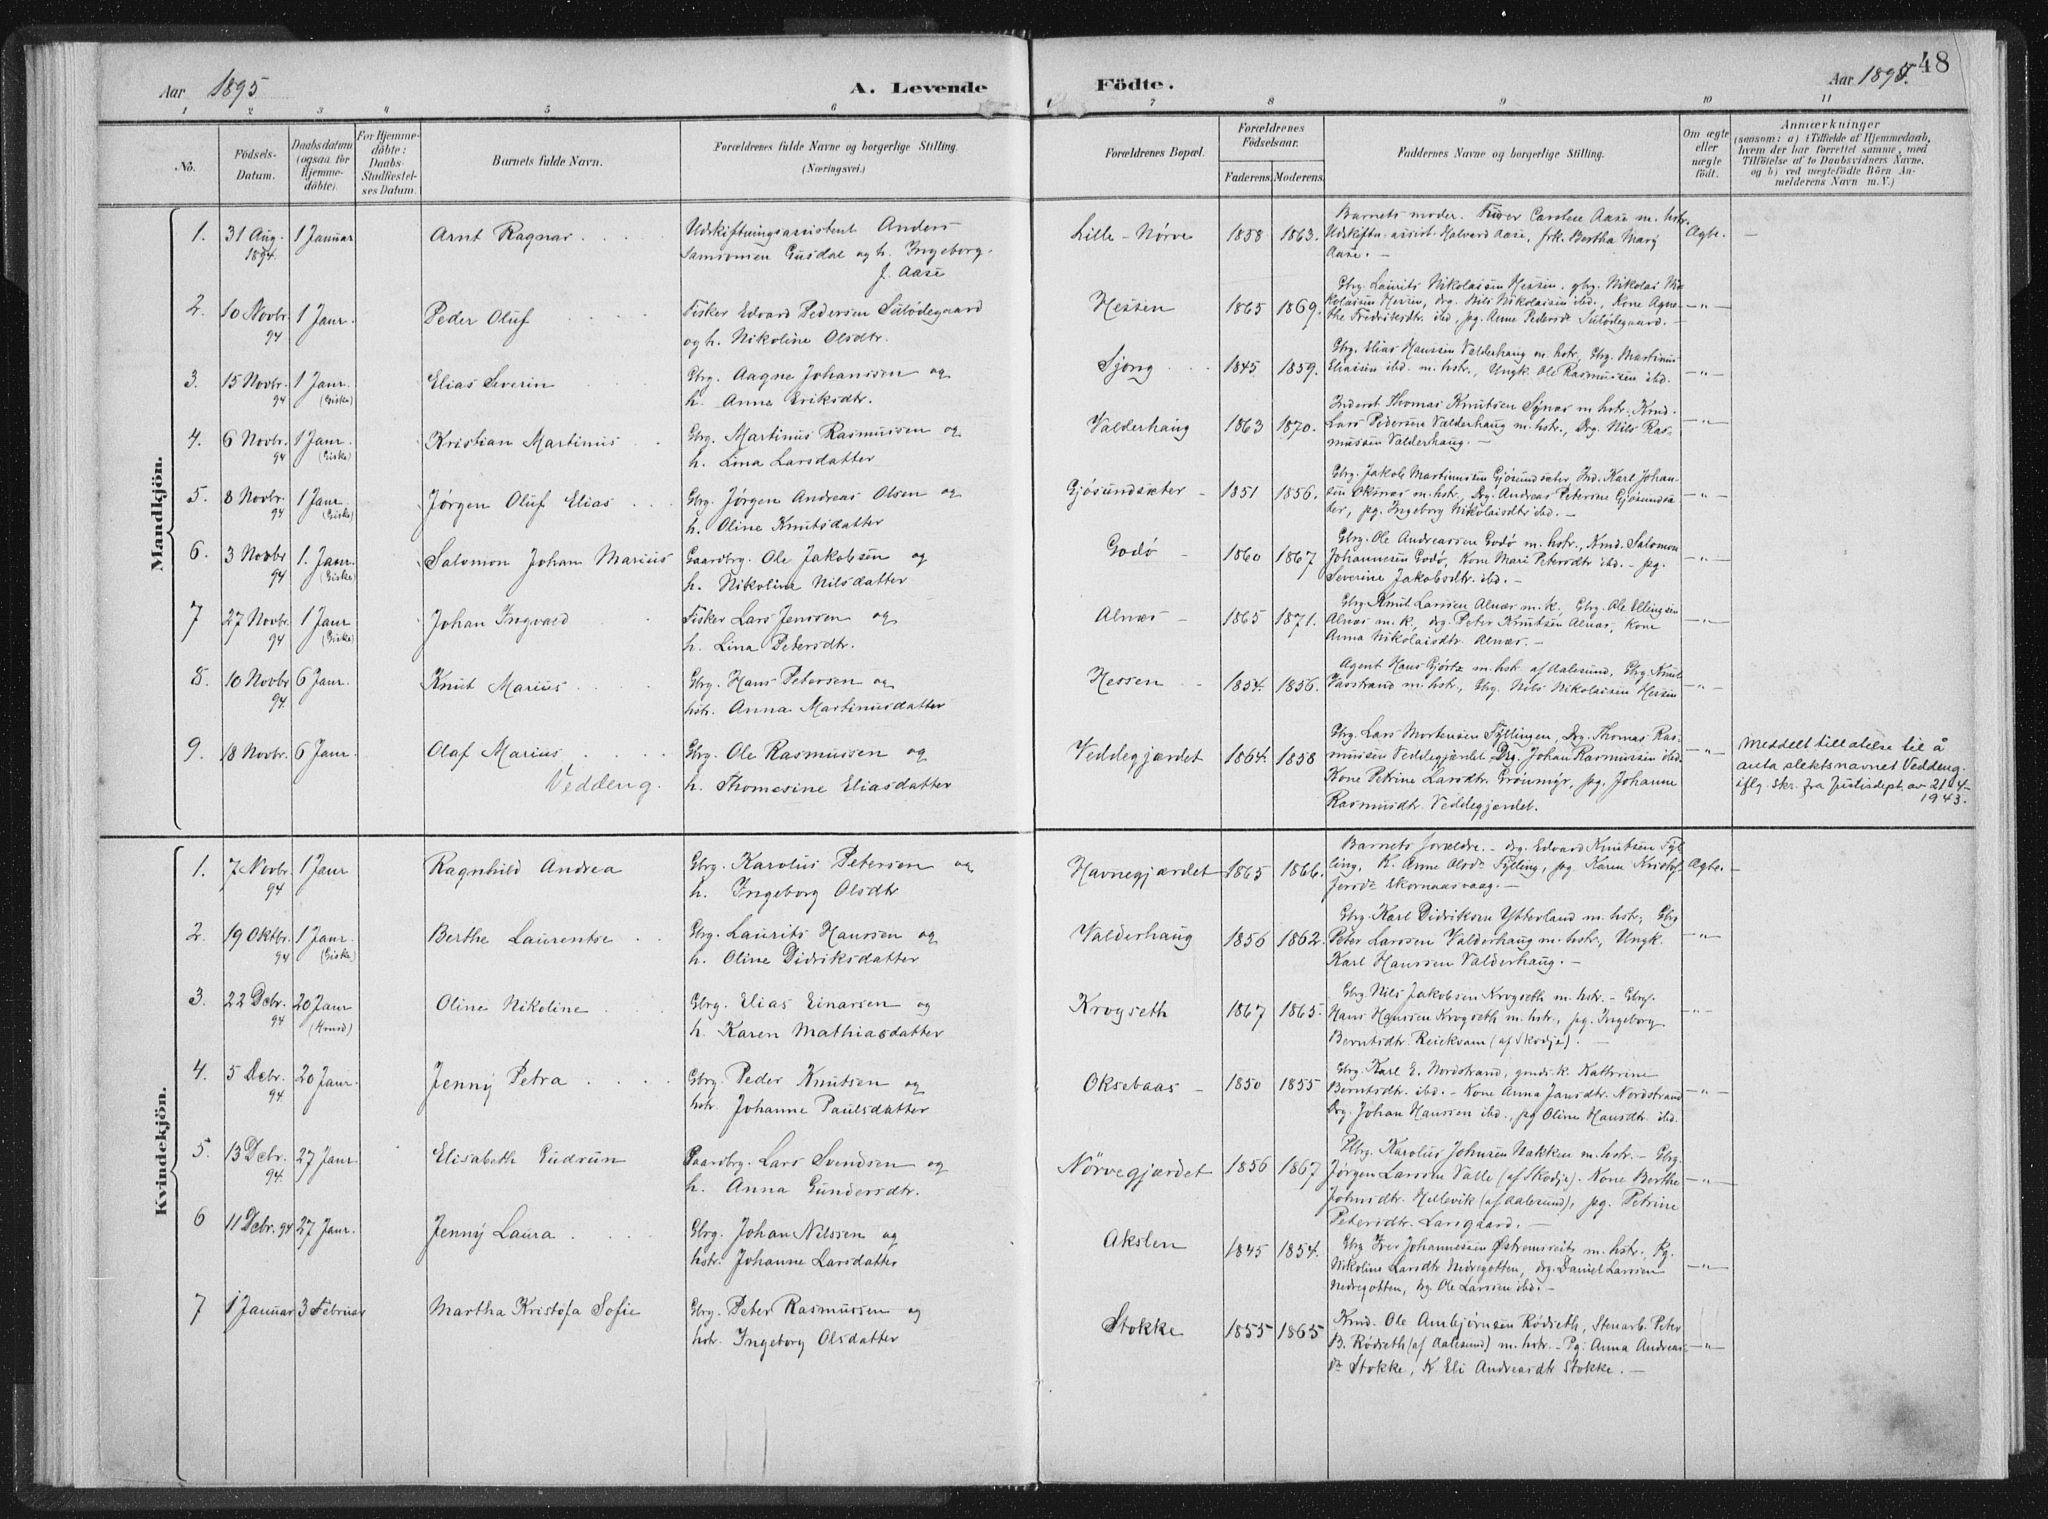 48
Aar 1895
A. Levende
Födte.
Aar 1895.
1 2 3 4 5 6 7 8 9 10 11
No.
Födsels-Datum.
Daabsdatum (ogsaa for Hjemme-døbte).
For Hjemme-døbte: Daabs-Stadfæstel-ses Datum.
Barnets fulde Navn.
Forældrenes fulde Navne og borgerlige Stilling.
(Næringsvei.)
Forældrenes Bopæl.
Forældrenes Födselsaar.
Faderens. Moderens.
Faddernes Navne og borgerlige Stilling.
Om ægte eller uægte født.
Anmærkninger
(saasom: a) i Tilfælde af Hjemmedaab,
hvem der har forrettet samme, med
Tilföielse af to Daabsvidners Navne,
og b) ved uægtefödte Börn An-
melderens Navn m. V.)
Mandkjön.
1. 31 Aug. 1894. 1 Januar Arnt Ragnar Udskiftningsassistent Anders
Samsonsen Gusdal og h. Ingeborg
J. Aase
Lille-Nørve 1858 1863. Barnets moder. Frøver Caroline Aase m. hstr.
Udskiftn. assist. Halvard Aase, frk. Bertha Mary
Aase. - Ægte. -
2. 10 Novbr. 94 1 Janr. Peder Oluf Fisker Edvard Pedersen Sulødegaard
og h. Nikoline Olsdtr.
Hessen 1865 1869. Gbrg. Laurits Nikolaisen Hessen, gbrg. Nikolai Ni-
kolaisen Hessen, drg. Nils Nikolaisen ibd., Kone Agne-
the Fredriksdtr. ibd, pg. Anne Pedersdt Sulødegaard. - -"-
3. 15 Novbr. 94 1 Janr. (Giske) Elias Severin Gbrg. Aagne Johanssen og
h. Anne Eriksdtr.
Sjong 1845 1859. Gbrg. Elias Hanssen Valderhaug m. hstr., Gbrg. Martinus
Eliasen ibd. m. hstr., Ungk. Ole Rasmussen ibd. -"-
4. 6 Novbr. 94 1 Janr. (Giske) Kristian Martinus Gbrg. Martinus Rasmussen og
h. Lina Larsdatter
Valderhaug 1863 1870. Inderst Thomas Knutsen Synes m hstr., Kmd.
Lars Pedersen Valderhaug m. hstr., Drg. Nils Ras-
mussen Valderhaug. - -"-
5. 8 Novbr. 94 1 Janr (Giske) Jørgen Oluf Elias Gbrg. Jørgen Andreas Olsen og
h. Oline Knutsdatter
Gjøsundsæter 1851 1856. Gbrg. Jakob Martinussen Gjøsundsæter, Ind. Karl Johan-
sen Oksnæs m. hstr., Drg. Andreas Petersen Gjøsundsæ-
ter, pg. Ingeborg Nikolaisdtr ibd. - -"-
6. 3 Novbr 94 1. Janr. (Giske) Salomon Johan Marius Gaardbrg. Ole Jakobsen og
h. Nikoline Nilsdatter
Godø 1860 1867 Gbrg. Ole Andreassen Godø m. hstr., Kmd. Salomon
Johannesen Godø, Kone Mari Petersdtr ibd. - pg.
Severine Jakobsdtr. ibd. - -"-
7 27 Novbr. 94 1 Janr (Giske) Johan Ingvald Fisker Lars Jenssen og
h. Lina Petersdtr.
Alnæs 1865 1871. Gbrg. Knut Larssen Alnæs m. k., Gbrg. Ole Ellingsen
Alnæs m. k., drg. Peter Knutsen Alnæs, Kone
Anna Nikolaisdtr. Alnæs. - -"-
8. 10 Novbr 94. 6 Janr. Knut Marius Gbrg. Hans Petersen og
hstr. Anna Martinusdatter
Hessen 1854. 1856. Agent Hans Gjörtz m. hstr. af Aalesund, Gbrg. Knut
Vasstrand m. hstr., Gbrg. Nils Nikolaisen Hessen -"-
9. 18 Novbr. 6 Janr. Olaf Marius Veddeng. Gbrg. Ole Rasmussen og
h. Thomesine Eliasdatter
Veddegjærdet 1864. 1858 Gbrg. Lars Mortensen Fyllingen, Drg. Thomas Ras-
mussen Veddegjærdet, Drg. Johan Rasmussen ibd.
Kone Petrine Larsdtr. Grönmyr, pg. Johanne
Rasmusdtr. Veddegjerdet. -"- Meddelt tillatelse til å
anta slektsnavnet Veddeng
iflg. skr. fra Justisdept. av 21-4-
1943.
Kvindekjön.
1. 7 Novbr. 94 1 Janr Ragnhild Andrea Gbrg. Karolus Petersen og
h. Ingeborg Olsdtr
Havnegjærdet 1865 1866. Barnets forældre. - drg. Edvard Knutsen Fyl-
ling, K. Anne Olsdr Fylling, pg Karen Kristof-
fersdr Skornaasvaag. - Ægte. -
2. 19 Oktbr. 94 1 Janr. (Giske) Berthe Laurentse Gbrg. Laurits Hanssen og
h. Oline Didriksdatter
Valderhaug 1856 1862. Gbrg. Karl Didriksen Ytterland m. hstr., Gbrg
Peter Larssen Valderhaug m. hstr., Ungk.
Karl Hanssen Valderhaug. - -"-
3. 22 Dcbr. 94 20 Janr Oline Nikoline Gbrg. Elias Einarsen og
h. Karen Mathiasdatter
Krogseth 1867 1865. Gbrg Nils Jakobsen Krogseth m. hstr. - Gbrg.
Hans Hanssen Krogseth m. hstr., pg. Ingeborg
Berntsdtr. Reiekvam (af Skodje). - -"-
4. 5 Dcbr. 94. 20 Janr. Jenny Petra Gbrg. Peder Knutsen og
hstr. Johanne Paulsdatter
Oksebaas 1850 1855 Gbrg. Karl E. Nordstrand, gmds. k. Kathrine
Berntsdtr. ibd. - Kone Anna Jansdtr. Nordstrand
Drg. Johan Hanssen ibd., pg Oline Hansdtr. ibd. -"-
5. 13 Dcbr. 94. 27 Janr. Elisabeth Gudrun Gaardbrg. Lars Svendsen og
h. Anna Gundersdtr.
Nörvegjærdet 1856 1867 Gbrg. Karolus Johnsen Nakken m. hstr. - Gbrg.
Jørgen Larssen Valle (af Skodje). Kone Berthe
Johnsdtr. Hellevik (af Aalesund), pg. Petrine
Petersdtr. Larsgaard. - -"-
6 11 Dcbr. 94 27 Janr. Jenny Laura Gbrg. Johan Nilssen og
hstr. Johanne Larsdatter
Akslen 1845 1854. Gbrg Iver Johannessen Østremsveits m. hstr., Pg.
Nikoline Larsdtr Nedregotten, drg. Daniel Larssen
Nedregotten, Drg Ole Larssen ibd. - -"-
7 1 Januar 3 Februar Martha Kristofa Sofie Gbrg. Peter Rasmussen og
hstr. Ingeborg Olsdatter
Stokke 1855 1865 Kmd. Ole Ambjörnsen Rödseth, Stenarb. Peter
B. Rödseth (af Aalesund) m. hstr. - Pg. Anna Andreas-
dr Stokke, K. Eli Andreasdtr Stokke. - -"-